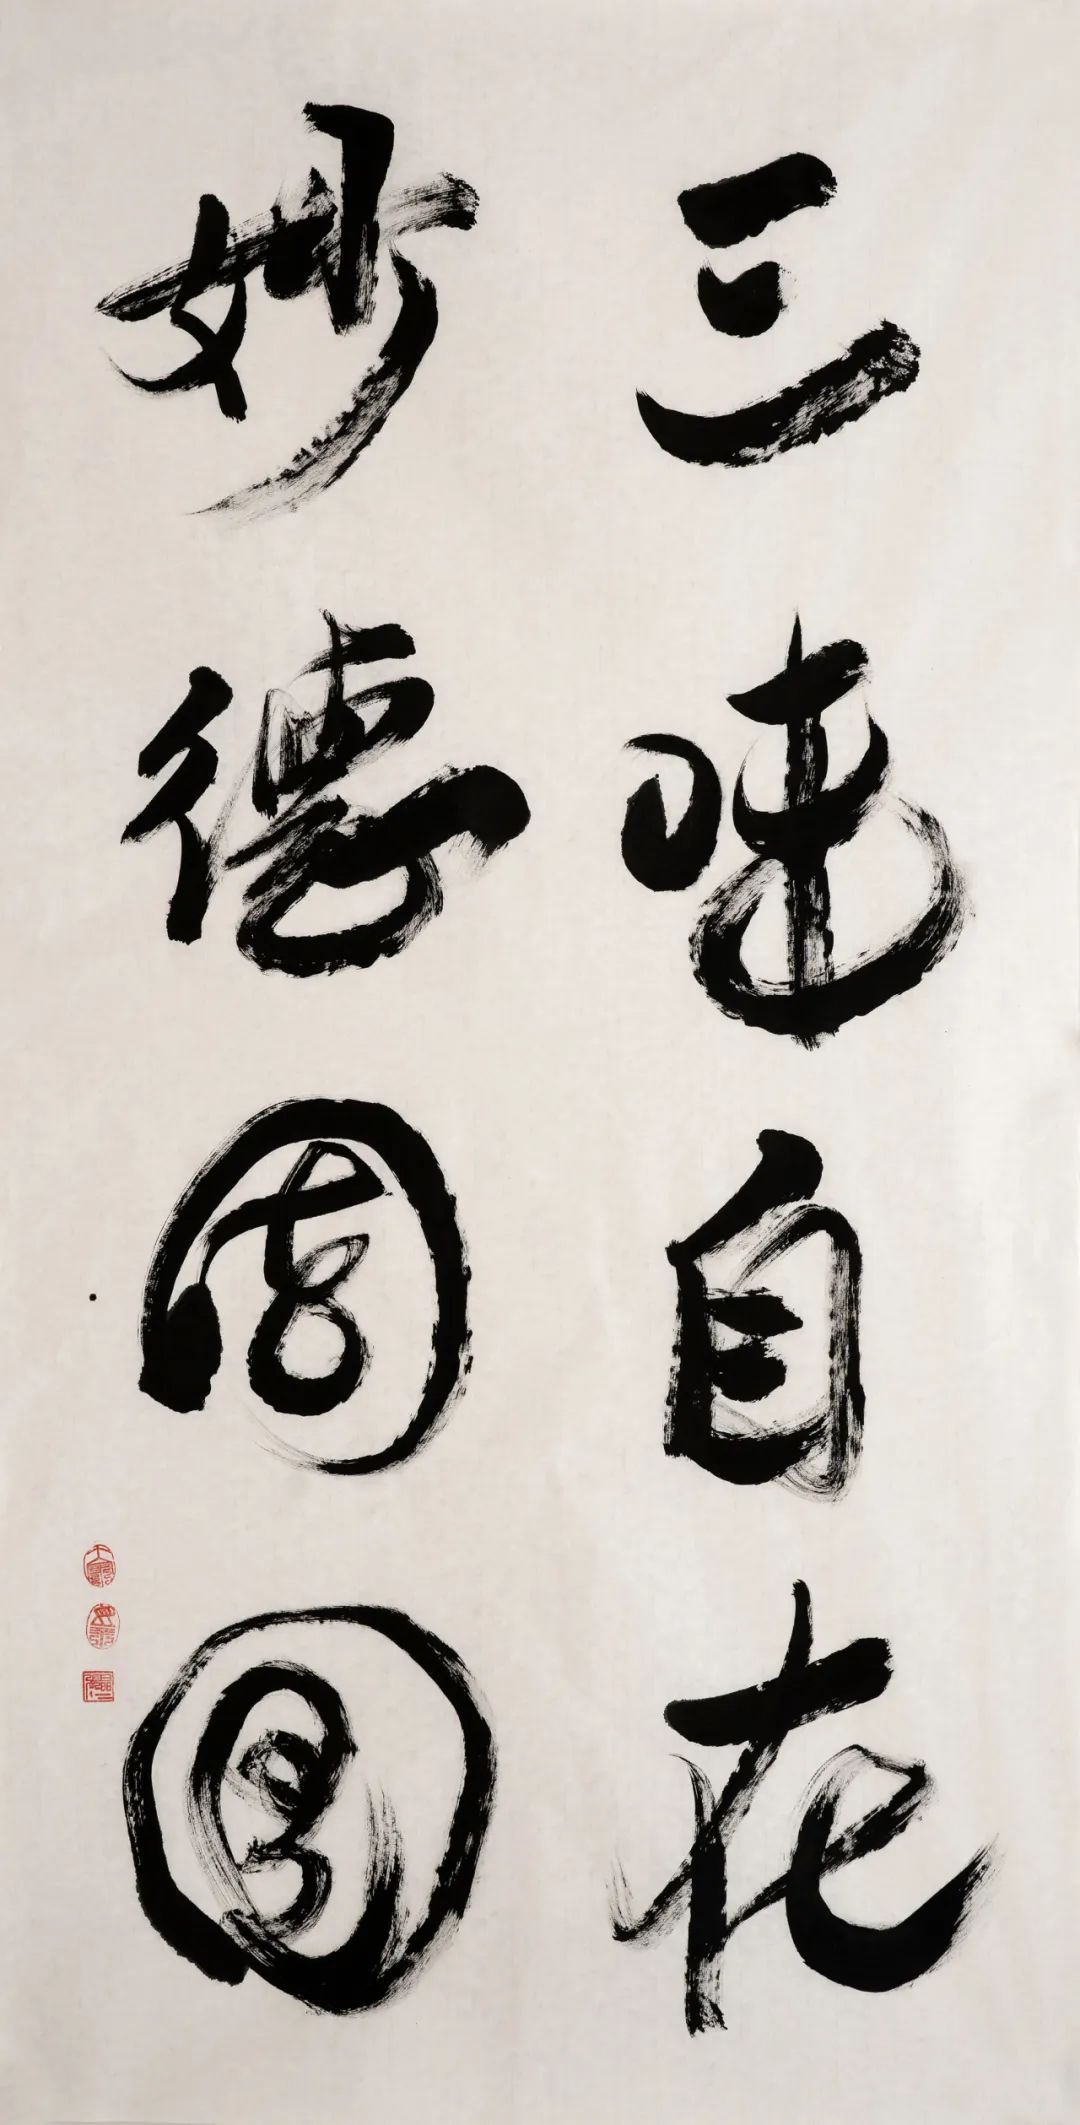 三昧自在
妙德周圓